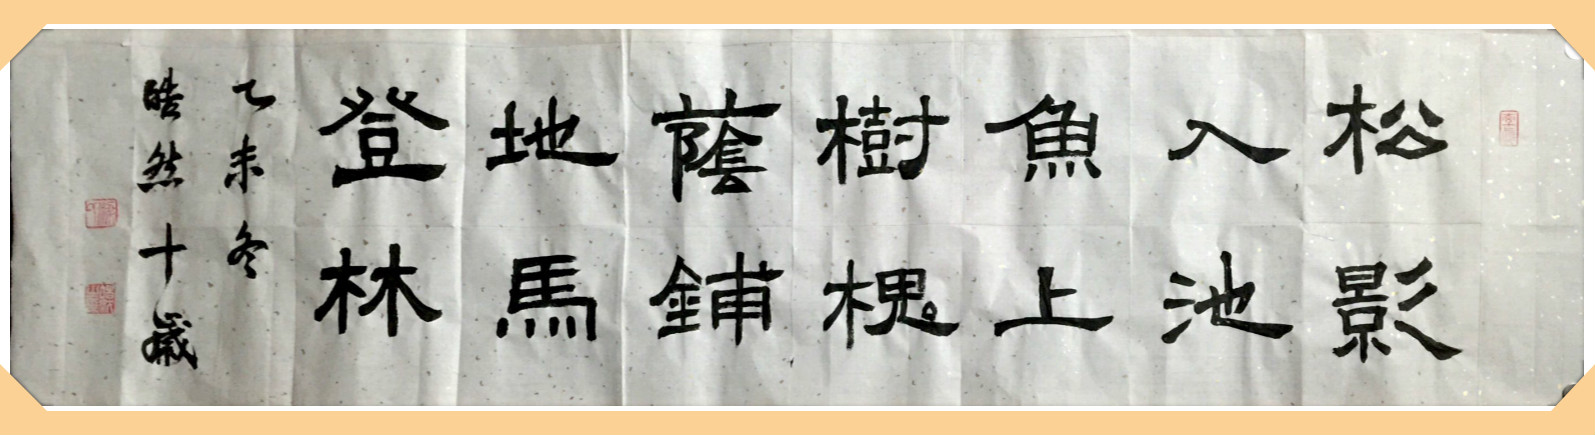 松影
入池
魚上
樹槐
蔭鋪
地馬
登林
乙未冬
皓然十歲